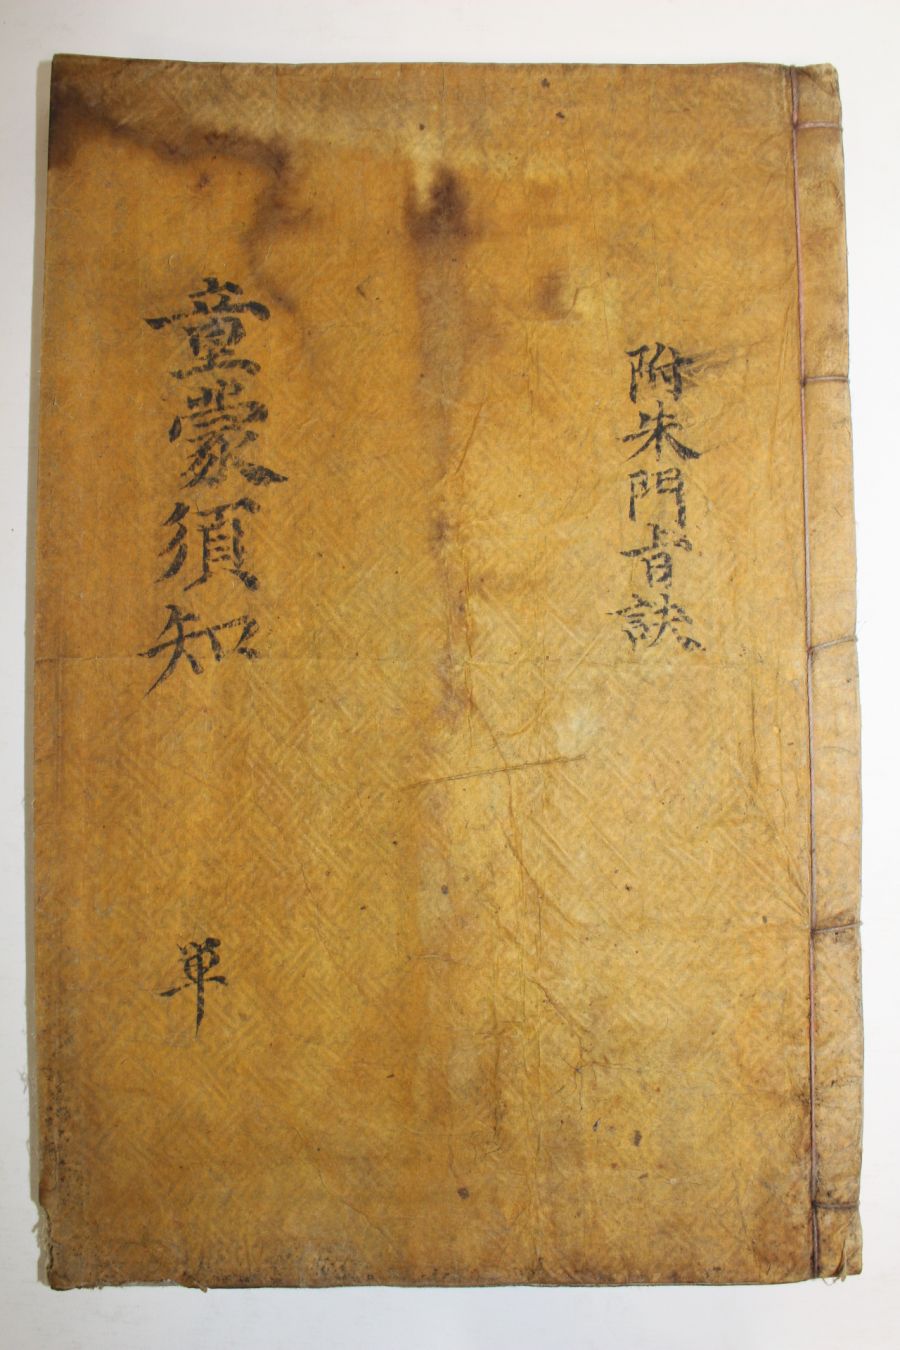 附朱門㫖訣
童蒙須知
単